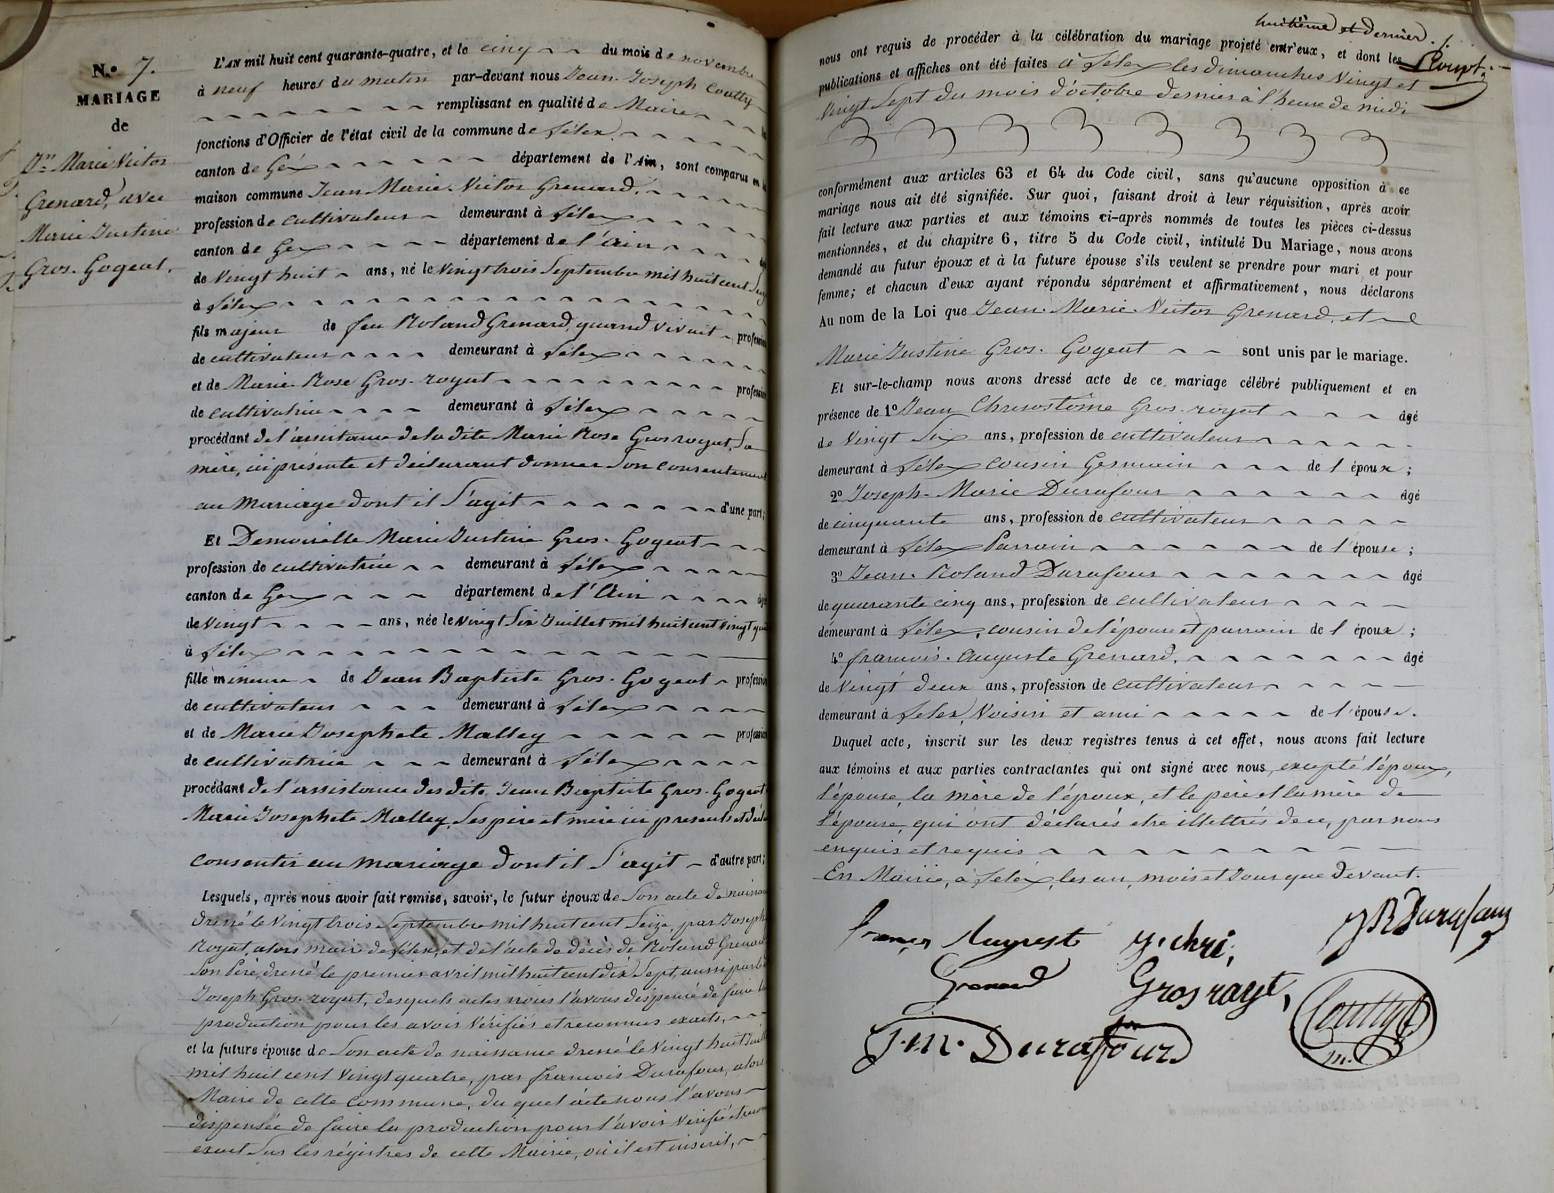 N.° 7.
MARIAGE
de
Sr. Marie Victor
Grenard, avec
Marie Justine
Gros-Gogeat.
L'AN mil huit cent quarante-quatre, et le cinq du mois de novembre
à neuf heures du matin par-devant nous Jean Joseph Coutty
remplissant en qualité de Maire
fonctions d'Officier de l'état civil de la commune de Lélex
canton de Géx département de l'Ain, sont comparus en la
maison commune Jean Marie Victor Grenard,
profession de cultivateur demeurant à Lélex
canton de Gex département de l'Ain
de vingt huit ans, né le vingt trois Septembre mil huit cent Seize
à Lélex
fils majeur de feu Roland Grenard, quand vivait profession
de cultivateur demeurant à Lélex
et de Marie Rose Gros-royat profession
de cultivatrice demeurant à Lélex
procédant de l'assistance de la dite Marie Rose Gros royat, Sa
mère, ici présente et déclarant donner Son consentement
au mariage dont il S'agit d'une part;
Et Demoiselle Marie Justine Gros-Gogeat
profession de cultivatrice demeurant à Lélex
canton de Gex département de l'Ain
de vingt ans, née le vingt Six Juillet mil huit cent vingt quatre
à Lélex
fille mineure de Jean Baptiste Gros-Gogeat profession
de cultivateur demeurant à Lélex
et de Marie Josephete Malley profession
de cultivatrice demeurant à Lélex
procédant de l'assistance des dits, Jean Baptiste Gros-Gogeat
Marie Josephete Malley, Ses père et mère ici présents et
consentir au mariage dont il S'agit d'autre part;
Lesquels, après nous avoir fait remise, savoir, le futur époux de Son acte de naissance
dressé le vingt trois Septembre mil huit cent Seize, par Joseph
Royat, alors maire de Lélex, et de l'acte de décès de Roland Grenard
Son père, dressé le premier avril mil huit cent dix Sept, aussi par le
Joseph Gros-royat, desquels actes nous l'avons dispensé de faire la
production pour les avoir vérifiés et reconnus exacts,
et la future épouse de Son acte de naissance dressé le vingt huit Juillet
mil huit cent vingt quatre, par francois Durafour, alors
Maire de cette commune, du quel acte nous l'avons
dispensée de faire la production pour l'avoir vérifié et reconnu
exact Sur les régistres de cette Mairie, où il est inscrit,
huitième et dernier.
nous ont requis de procéder à la célébration du mariage projeté entr'eux, et dont les
publications et affiches ont été faites à Lélex les dimanches vingt et
vingt Sept du mois d'octobre dernier à l'heure de midi
conformément aux articles 63 et 64 du Code civil, sans qu'aucune opposition à ce
mariage nous ait été signifiée. Sur quoi, faisant droit à leur réquisition, après avoir
fait lecture aux parties et aux témoins ci-après nommés de toutes les pièces ci-dessus
mentionnées, et du chapitre 6, titre 5 du Code civil, intitulé Du Mariage, nous avons
demandé au futur époux et à la future épouse s'ils veulent se prendre pour mari et pour
femme; et chacun d'eux ayant répondu séparément et affirmativement, nous déclarons
Au nom de la Loi que Jean-Marie-Victor Grenard, et
Marie Justine Gros-Gogeat sont unis par le mariage.
Et sur-le-champ nous avons dressé acte de ce mariage célébré publiquement et en
présence de 1° Jean Chrisostôme Gros-royat âgé
de vingt Six ans, profession de cultivateur
demeurant à Lélex cousin Germain de l'époux;
2° Joseph-Marie Durafour âgé
de cinquante ans, profession de cultivateur
demeurant à Lélex Parrain de l'épouse;
3° Jean-Roland Durafour âgé
de quarante cinq ans, profession de cultivateur
demeurant à Lélex, cousin de l'épouse et parrain de l'époux;
4° francois-Auguste Grenard, âgé
de vingt deux ans, profession de cultivateur
demeurant à Lelex, Voisin et ami de l'épouse.
Duquel acte, inscrit sur les deux registres tenus à cet effet, nous avons fait lecture
aux témoins et aux parties contractantes qui ont signé avec nous, excepté l'époux,
l'épouse, la mère de l'époux, et le père et la mère de
l'épouse, qui ont déclarés etre illettrés de ce, par nous
enquis et requis
En Mairie, à Lelex, les an, mois et Jour que devant.
françois Auguste J. chri; J R Durafour
Grenard Gros royat,
J. m. Durafour Coutty
m.